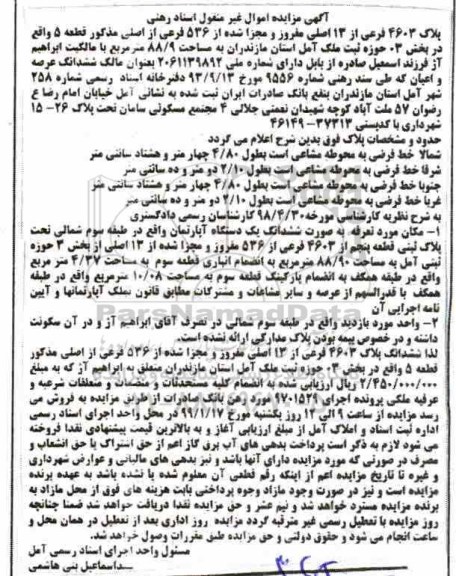 آگهی مزایده اموال غیر منقول اسناد رهنی
پلاک ۴۶۰۳ فرعی از ۱۳ اصلی مفروز و مجزا شده از ۵۳۶ فرعی از اصلی مذکور قطعه ۵ واقع
در بخش ۰۳ حوزه ثبت ملک آمل استان مازندران به مساحت ۸۸/۹ مترمربع با مالکیت ابراهیم
آژ فرزند اسمعیل صادره از بابل دارای شماره ملی ۲۰۶۱۱۳۹۸۹۲ بعنوان مالک ششدانگ عرصه
و اعیان که طی سند رهنی شماره ۹۵۵۶ مورخ ۹۳/۹/۱۳ دفترخانه اسناد رسمی شماره ۲۵۸
شهر آمل استان مازندران بنفع بانک صادرات ایران ثبت شده به نشانی آمل خیابان امام رضا ع
رضوان ۵۷ ملت آباد کوچه شهیدان نعمتی جلالی ۴ مجتمع مسکونی سامان تحت پلاک ۲۶- ۱۵
شهرداری با کدپستی ۳۷۳۱۳- ۴۶۱۴۹
حدود و مشخصات پلاک فوق بدین شرح اعلام می گردد
شمالا خط فرضی به محوطه مشاعی است بطول ۴/۸۰ چهار متر و هشتاد سانتی متر
شرقا خط فرضی به محوطه مشاعی است بطول ۲/۱۰ دو متر و ده سانتی متر
جنوبا خط فرضی به محوطه مشاعی است بطول ۴/۸۰ چهار متر و هشتاد سانتی متر
غربا خط فرضی به محوطه مشاعی است بطول ۲/۱۰ دو متر و ده سانتی متر
به شرح نظریه کارشناسی مورخه ۹۸/۴/۳۰ کارشناسان رسمی دادگستری
۱- مکان مورد تعرفه به صورت ششدانگ یک دستگاه آپارتمان واقع در طبقه سوم شمالی تحت
پلاک ثبتی قطعه پنجم از ۴۶۰۳ فرعی از ۵۳۶ مفروز و مجزا شده از ۱۳ اصلی از بخش ۳ حوزه
ثبتی آمل به مساحت ۸۸/۹۰ مترمربع به انضمام انباری قطعه سوم به مساحت ۴/۳۷ متر مربع
واقع در طبقه همکف به انضمام پارکینگ قطعه سوم به مساحت ۱۰/۰۸ مترمربع واقع در طبقه
همکف با قدرالسهم از عرصه و سایر مشاعات و مشترکات مطابق قانون تملک آپارتمانها و آیین
نامه اجرایی آن
۲- واحد مورد بازدید واقع در طبقه سوم شمالی در تصرف آقای ابراهیم آژ و در آن سکونت
داشته و در خصوص بیمه بودن پلاک مدارکی ارائه نشده است.
لذا ششدانگ پلاک ۴۶۰۳ فرعی از ۱۳ اصلی مفروز و مجزا شده از ۵۳۶ فرعی از اصلی مذکور
قطعه ۵ واقع در بخش ۰۳ حوزه ثبت ملک آمل استان مازندران متعلق به ابراهیم آژ که به مبلغ
۲/۴۵۰/۰۰۰/۰۰۰ ریال ارزیابی شده به انضمام کلیه مستحدثات و منضمات و متعلقات شرعیه و
عرفیه ملکی پرونده اجرای ۹۷۰۱۵۲۱ مورد رهن بانک صادرات ازطریق مزایده به فروش می
رسد مزایده از ساعت ۹ الی ۱۲ روز یکشنبه مورخ ۹۹/۱/۱۷ در محل واحد اجرای اسناد رسمی
اداره ثبت اسناد و املاک آمل از مبلغ ارزیابی آغاز و به بالاترین قیمت پیشنهادی نقدا فروخته
می شود لازم به ذکر است پرداخت بدهی های آب برق گاز اعم از حق اشتراک یا حق انشعاب و
مصرف در صورتی که مورد مزایده دارای آنها باشد و نیز بدهی های مالیاتی و عوارض شهرداری
و غیره تا تاریخ مزایده اعم از اینکه رقم قطعی آن معلوم شده یا نشده باشد به عهده برنده
مزایده است و نیز در صورت وجود مازاد وجوه پرداختی بابت هزینه های فوق از محل مازاد به
برنده مزایده مسترد خواهد شد و نیم عشر و حق مزایده نقدا دریافت خواهد شد ضمنا چنانچه
روز مزایده با تعطیل رسمی غیر مترقبه گردد مزایده روز اداری بعد از تعطیل در همان محل و
ساعت انجام می شود و حقوق دولتی و حق مزایده طبق مقررات وصول خواهد شد.
مسئول واحد اجرای اسناد رسمی آمل
سداسماعیل بنی هاشمی
ParsNamadData